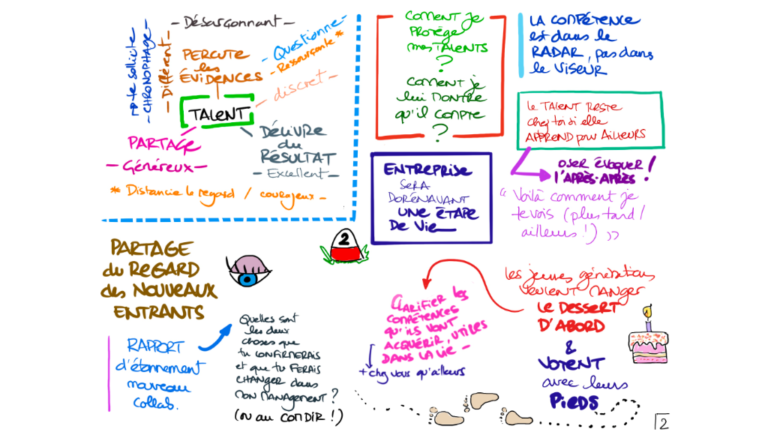 - Désarçonnant -
- CHRONOPHAGE -
- Différent -
PERCUTE
les
ÉVIDENCES
- Questionne -
- Ressourçante *
- discret -
TALENT
PARTAGE
- Généreux -
DÉLIVRE
DU
RÉSULTAT
- Excellent -
* Distancie le regard / courageux -
COMENT JE
PROTÈGE
mes TALENTS
?
COMENT JE
lui MONTRE
qu'il COMPTE
?
LA COMPÉTENCE
est dans le
RADAR, pas dans
le VISEUR
le TALENT RESTE
chez toi si elle
APPREND pour AILLEURS
OSER ÉVOQUER !
l'APRÈS-APRÈS !
ENTREPRISE
SERA
DORÉNAVANT
UNE ÉTAPE
DE Vie -
“ Voilà comment je
te vois (plus tard /
ailleurs !) ”
2
PARTAGE
du REGARD
des NOUVEAUX
ENTRANTS
RAPPORT
d'étonnement
nouveau
collab.
Quelles sont
les deux
choses que
tu CONFIRMERAS
et que tu FERAIS
CHANGER dans
MON MANAGEMENT ?
(ou au CODIR !)
CLARIFIER les
COMPÉTENCES
qu'ils VONT
ACQUÉRIR, UTILES
DANS LA VIE -
+ chez vous qu'ailleurs
les jeunes générations
VEULENT MANGER
LE DESSERT
D'ABORD
&
VOTENT
avec leurs
PIEDS
2